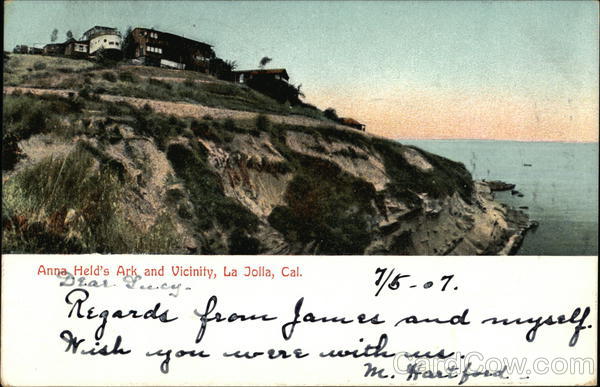 Anna Held's Ark and Vicinity, La Jolla, Cal.
7/5-07.
Dear Lucy.
Regards from James and myself.
Wish you were with us.
M. Hartford.
CardCow.com